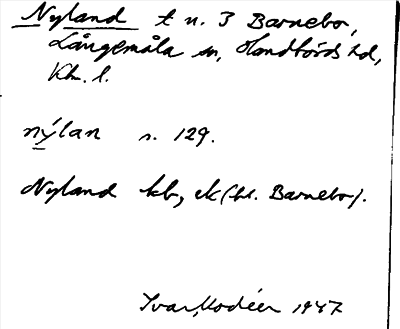 Nyland t n. 3 Barnebo,
Långemåla sn, Handbörds hd,
Klm. l.
nýlan s. 129.
Nyland kb, ek (hl. Barnebo).
Ivar Modéer 1947